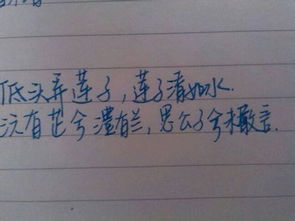 低头弄莲子，莲子清如水.
沅有芷兮澧有兰，思公子兮未敢言.